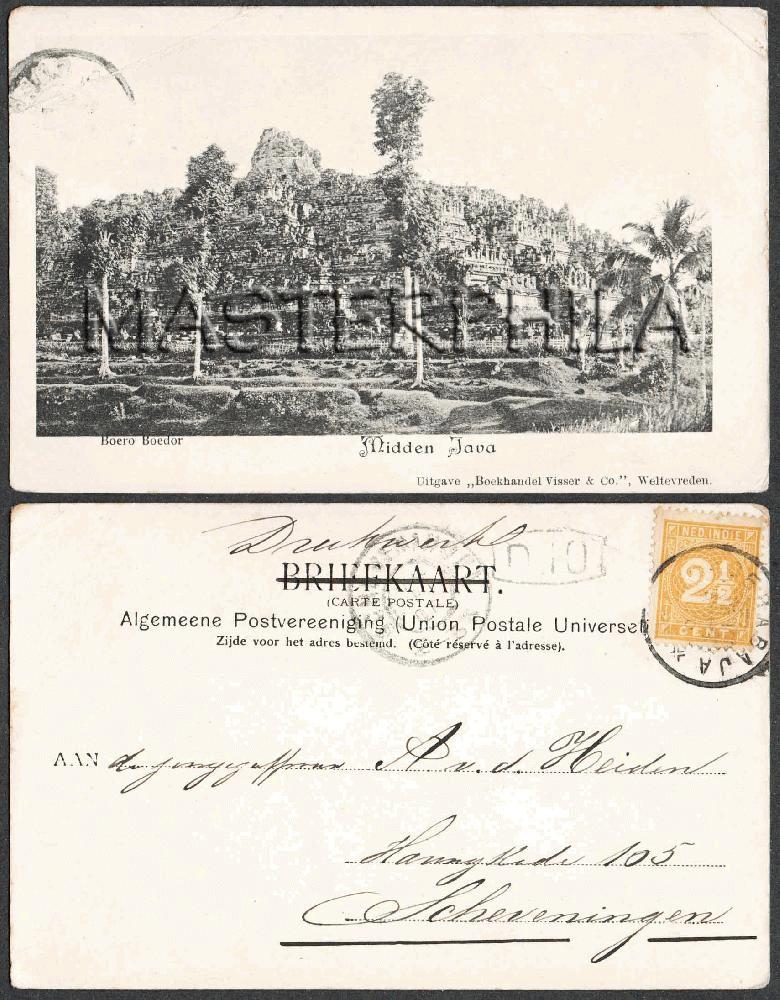 MASTERPHILA
Boero Boedor
Midden Java
Uitgave „Boekhandel Visser & Co.”, Weltevreden.
Drukwerk
BRIEFKAART.
(CARTE POSTALE)
Algemeene Postvereeniging (Union Postale Universel
Zijde voor het adres bestemd. (Côté réservé à l'adresse).
NED. INDIE
2½
CENT
AAN A. v. d. Heiden
105
Scheveningen